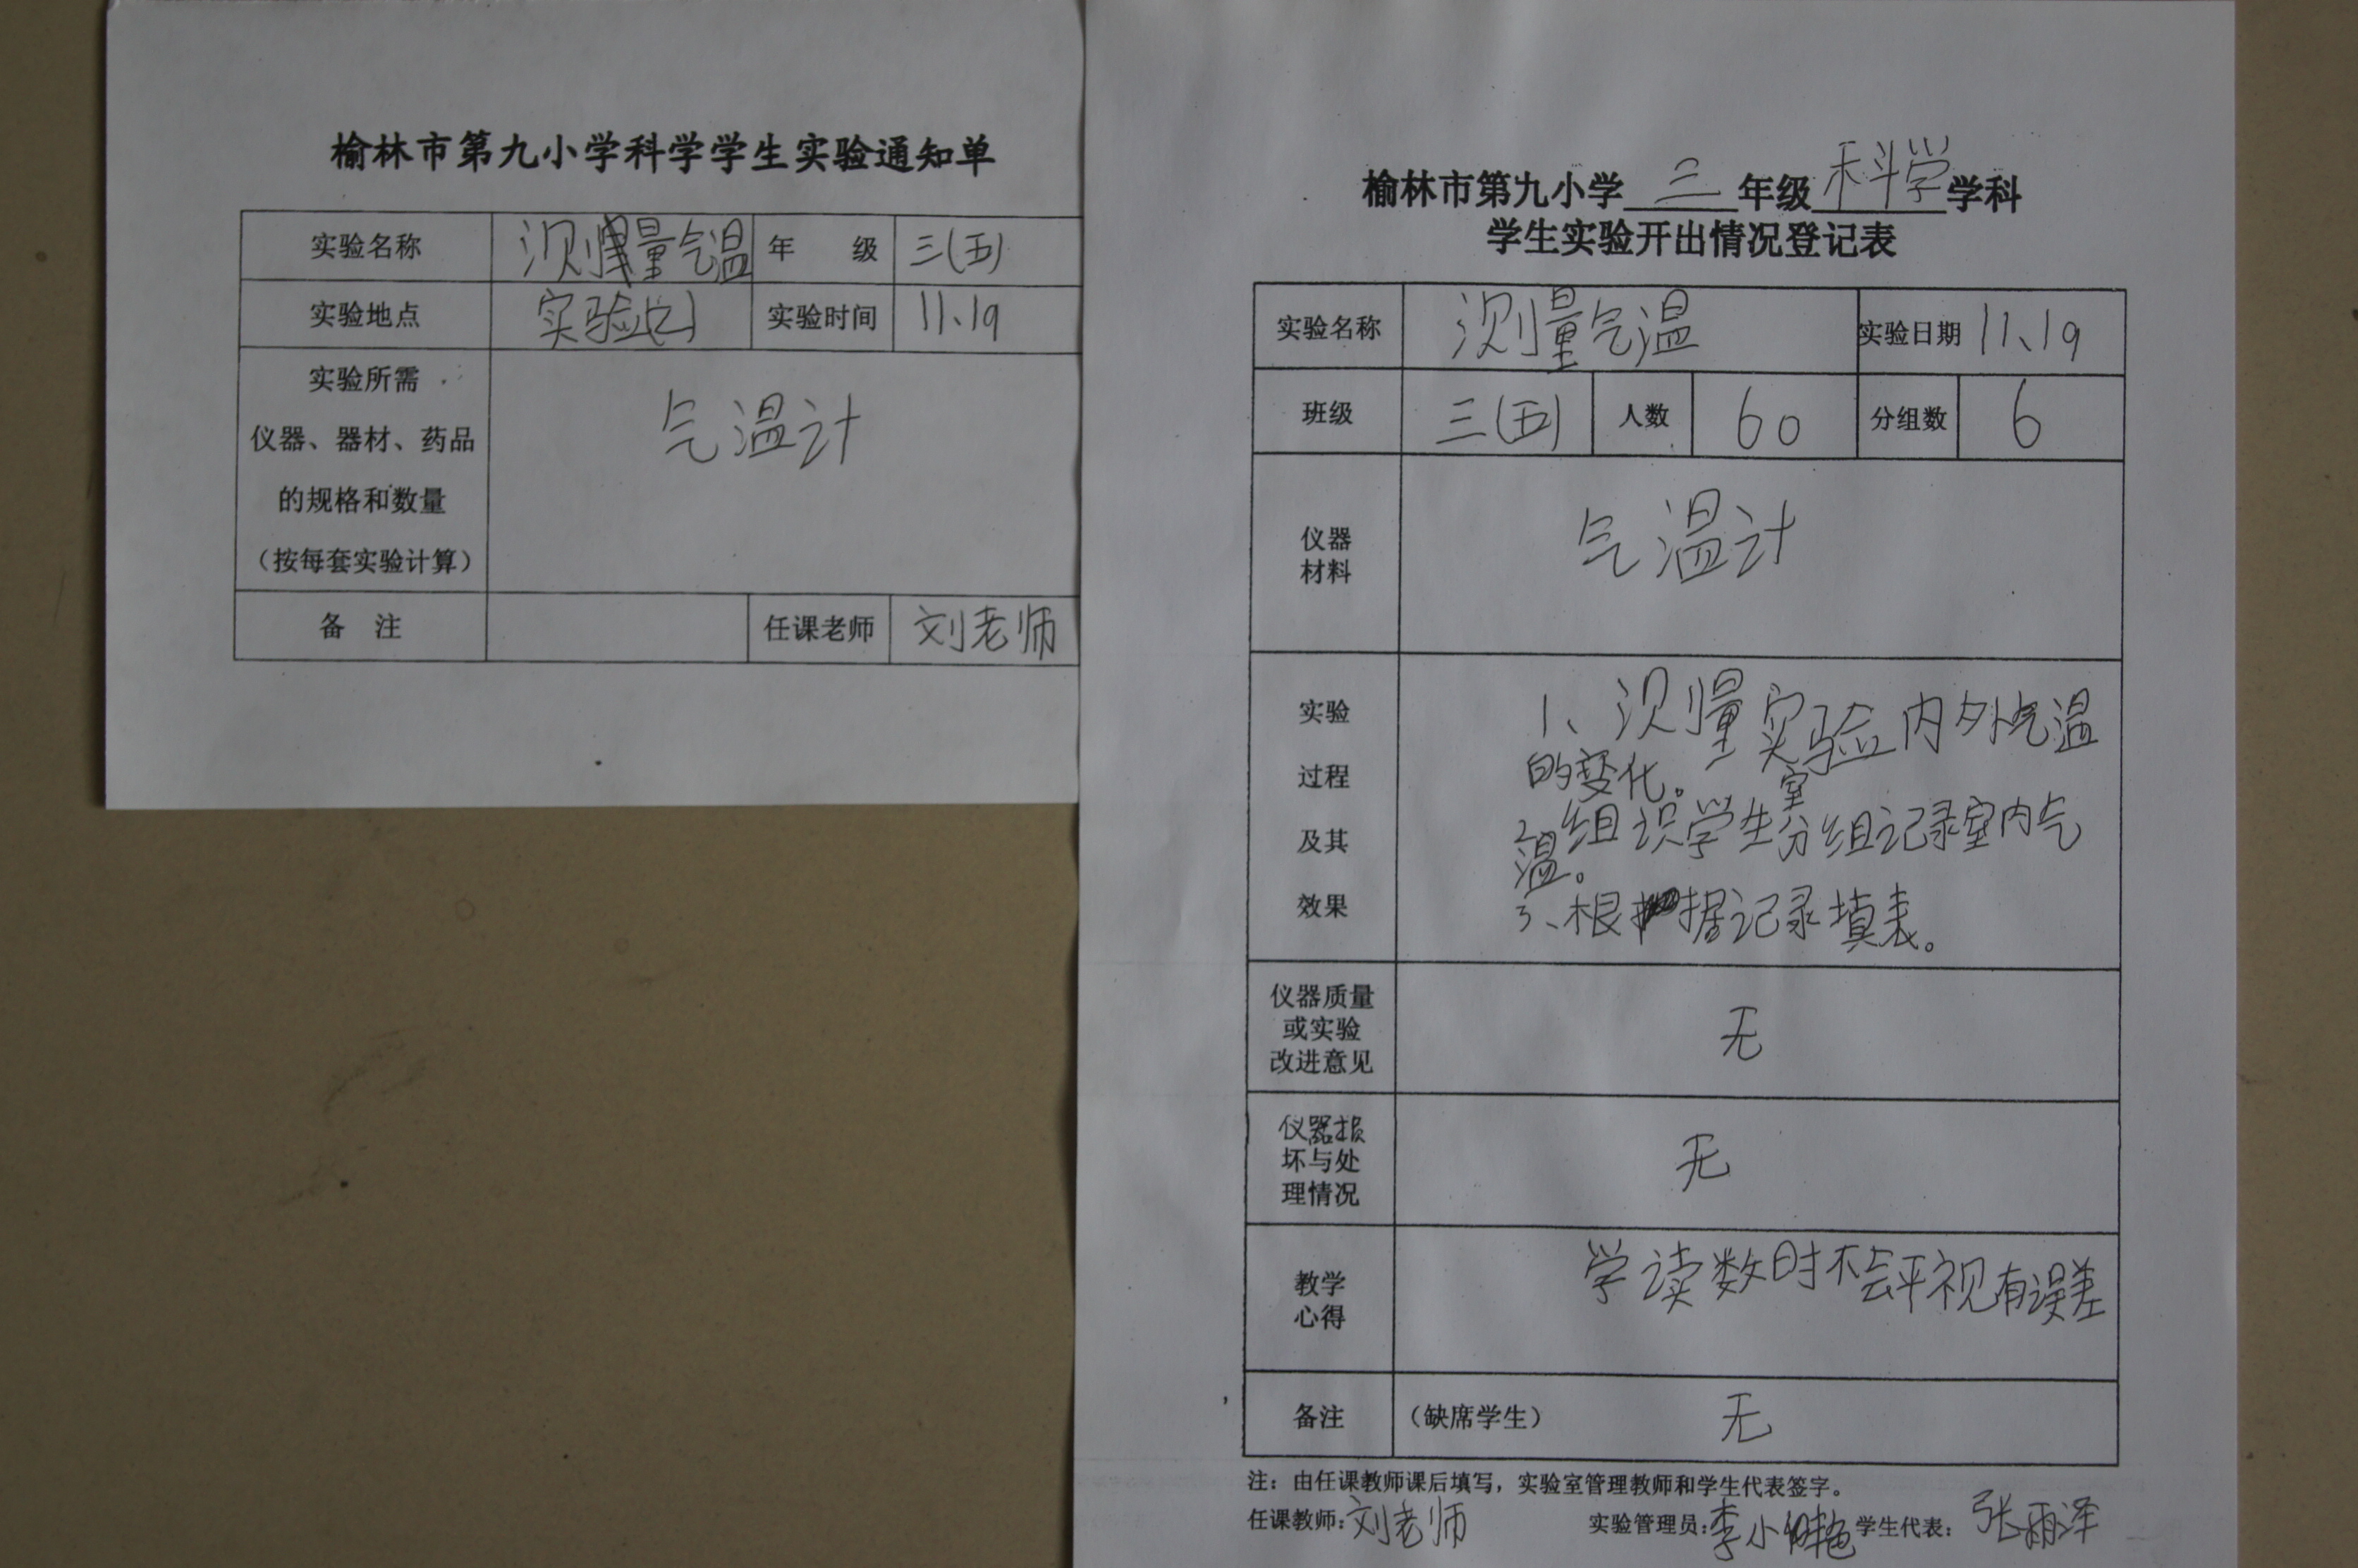 榆林市第九小学科学学生实验通知单
实验名称 测量气温 年 级 三(五)
实验地点 实验(2) 实验时间 11、19
实验所需
仪器、器材、药品
的规格和数量
（按每套实验计算）
气温计
备 注 任课老师 刘老师
榆林市第九小学 三 年级 科学 学科
学生实验开出情况登记表
实验名称 测量气温 实验日期 11、19
班级 三(五) 人数 60 分组数 6
仪器
材料
气温计
实验
过程
及其
效果
1、测量实验内外气温
的变化。 室
2、组识学生分组记录室内气
温。
3、根据记录填表。
仪器质量
或实验
改进意见
无
仪器损
坏与处
理情况
无
教学
心得
学读数时不会平视有误差
备注 （缺席学生） 无
注：由任课教师课后填写，实验室管理教师和学生代表签字。
任课教师:刘老师 实验管理员:李小艳 学生代表：张雨泽